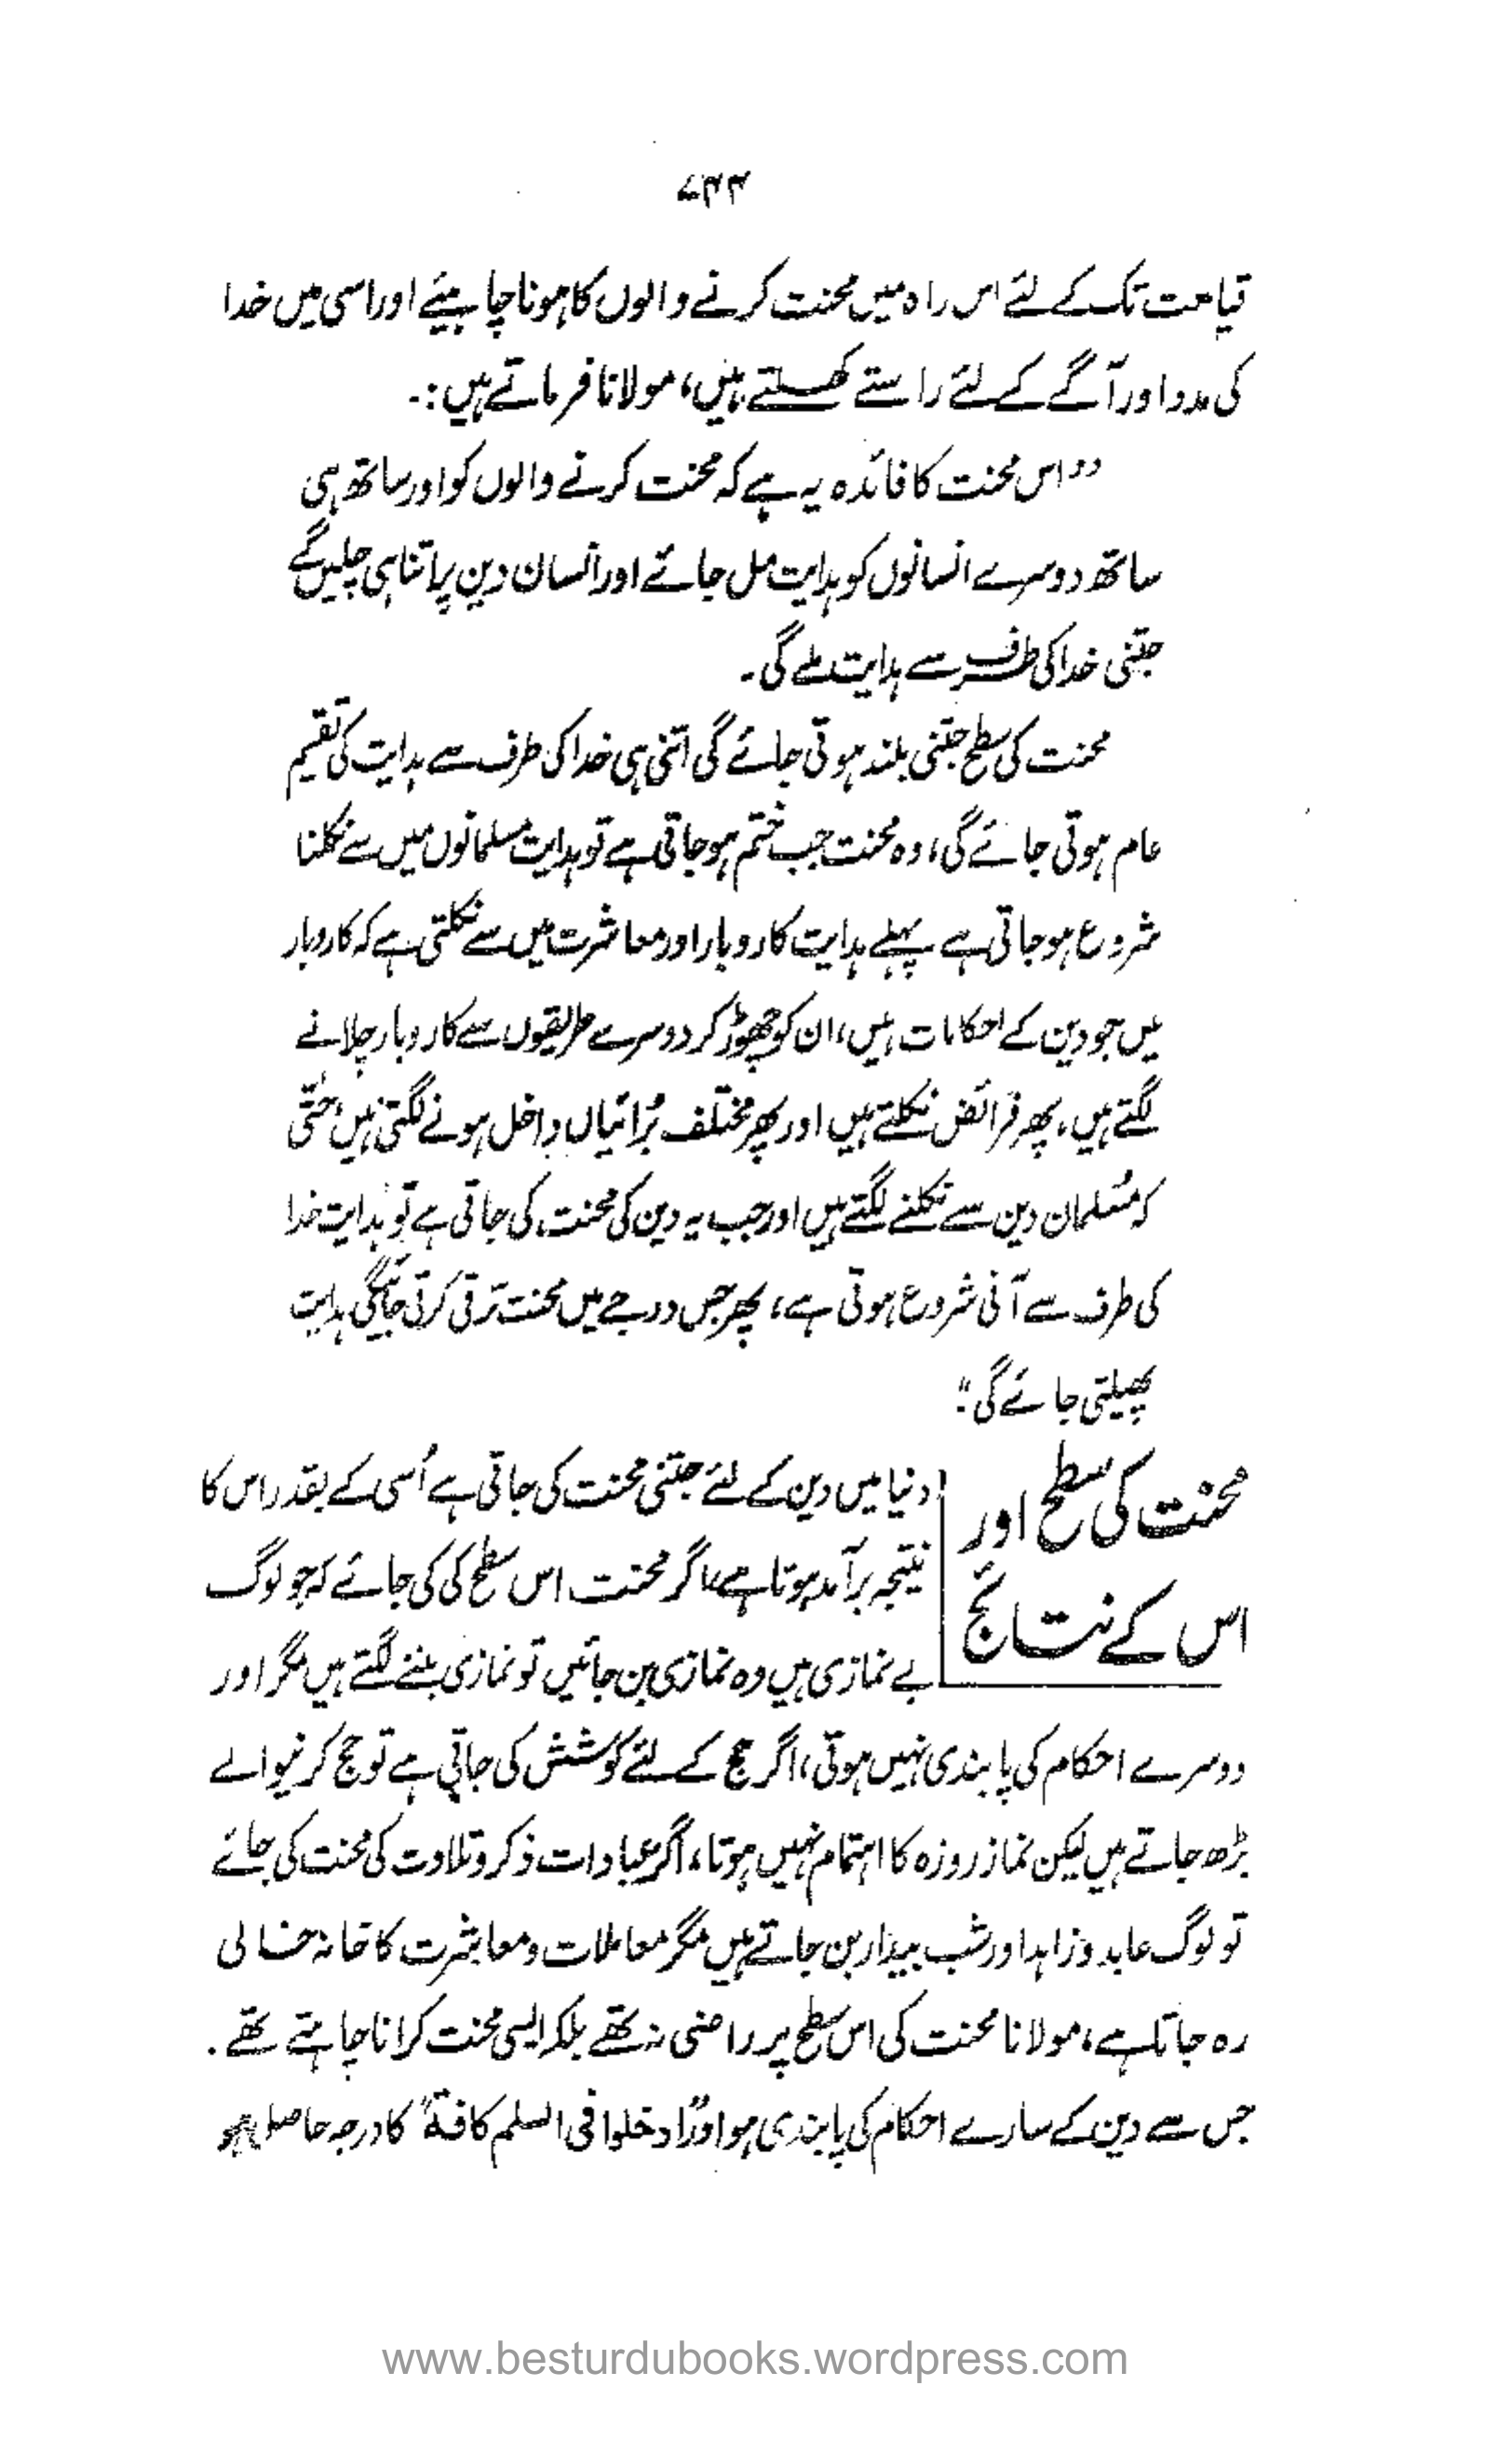 ۷۴۳
قیامت تک کے لئے اس راہ میں محنت کرنے والوں کا ہونا چاہیئے اور اسی میں خدا
کی مدد اور آگے کے لئے راستے کھلتے ہیں، مولانا فرماتے ہیں:۔
"اس محنت کا فائدہ یہ ہے کہ محنت کرنے والوں کو اور ساتھ ہی
ساتھ دوسرے انسانوں کو ہدایت مل جائے اور انسان دین پر اتنا ہی چلیں گے
جتنی خدا کی طرف سے ہدایت ملے گی۔
محنت کی سطح جتنی بلند ہوتی جائے گی اتنی ہی خدا کی طرف سے ہدایت کی تقسیم
عام ہوتی جائے گی، وہ محنت جب ختم ہو جاتی ہے تو ہدایت مسلمانوں میں سے نکلنا
شروع ہو جاتی ہے پہلے ہدایت کاروبار اور معاشرت میں سے نکلتی ہے کہ کاروبار
میں جو دین کے احکامات ہیں، ان کو چھوڑ کر دوسرے طریقوں سے کاروبار چلانے
لگتے ہیں، پھر فرائض نکلتے ہیں اور پھر مختلف بُرائیاں داخل ہونے لگتی ہیں حتّٰی
کہ مُسلمان دین سے نکلنے لگتے ہیں اور جب یہ دین کی محنت کی جاتی ہے تو ہدایت خدا
کی طرف سے آنی شروع ہوتی ہے، پھر جس درجے میں محنت ترقی کرتی جائیگی ہدایت
پھیلتی جائے گی"۔
محنت کی سطح اور
اس کے نتائج
دنیا میں دین کے لئے جتنی محنت کی جاتی ہے اُسی کے بقدر اس کا
نتیجہ برآمد ہوتا ہے، اگر محنت اس سطح کی کی جائے کہ جو لوگ
بے نمازی ہیں وہ نمازی بن جائیں تو نمازی بننے لگتے ہیں مگر اور
دوسرے احکام کی پابندی نہیں ہوتی، اگر حج کے لئے کوشش کی جاتی ہے تو حج کرنیوالے
بڑھ جاتے ہیں لیکن نماز روزہ کا اہتمام نہیں ہوتا، اگر عبادات ذکر و تلاوت کی محنت کی جائے
تو لوگ عابد و زاہد اور شب بیدار بن جاتے ہیں مگر معاملات و معاشرت کا خانہ خالی
رہ جاتا ہے، مولانا محنت کی اس سطح پر راضی نہ تھے بلکہ ایسی محنت کرانا چاہتے تھے۔
جس سے دین کے سارے احکام کی پابندی ہو اور "ادخلوا فی السلم کافة" کا درجہ حاصل ہو
www.besturdubooks.wordpress.com